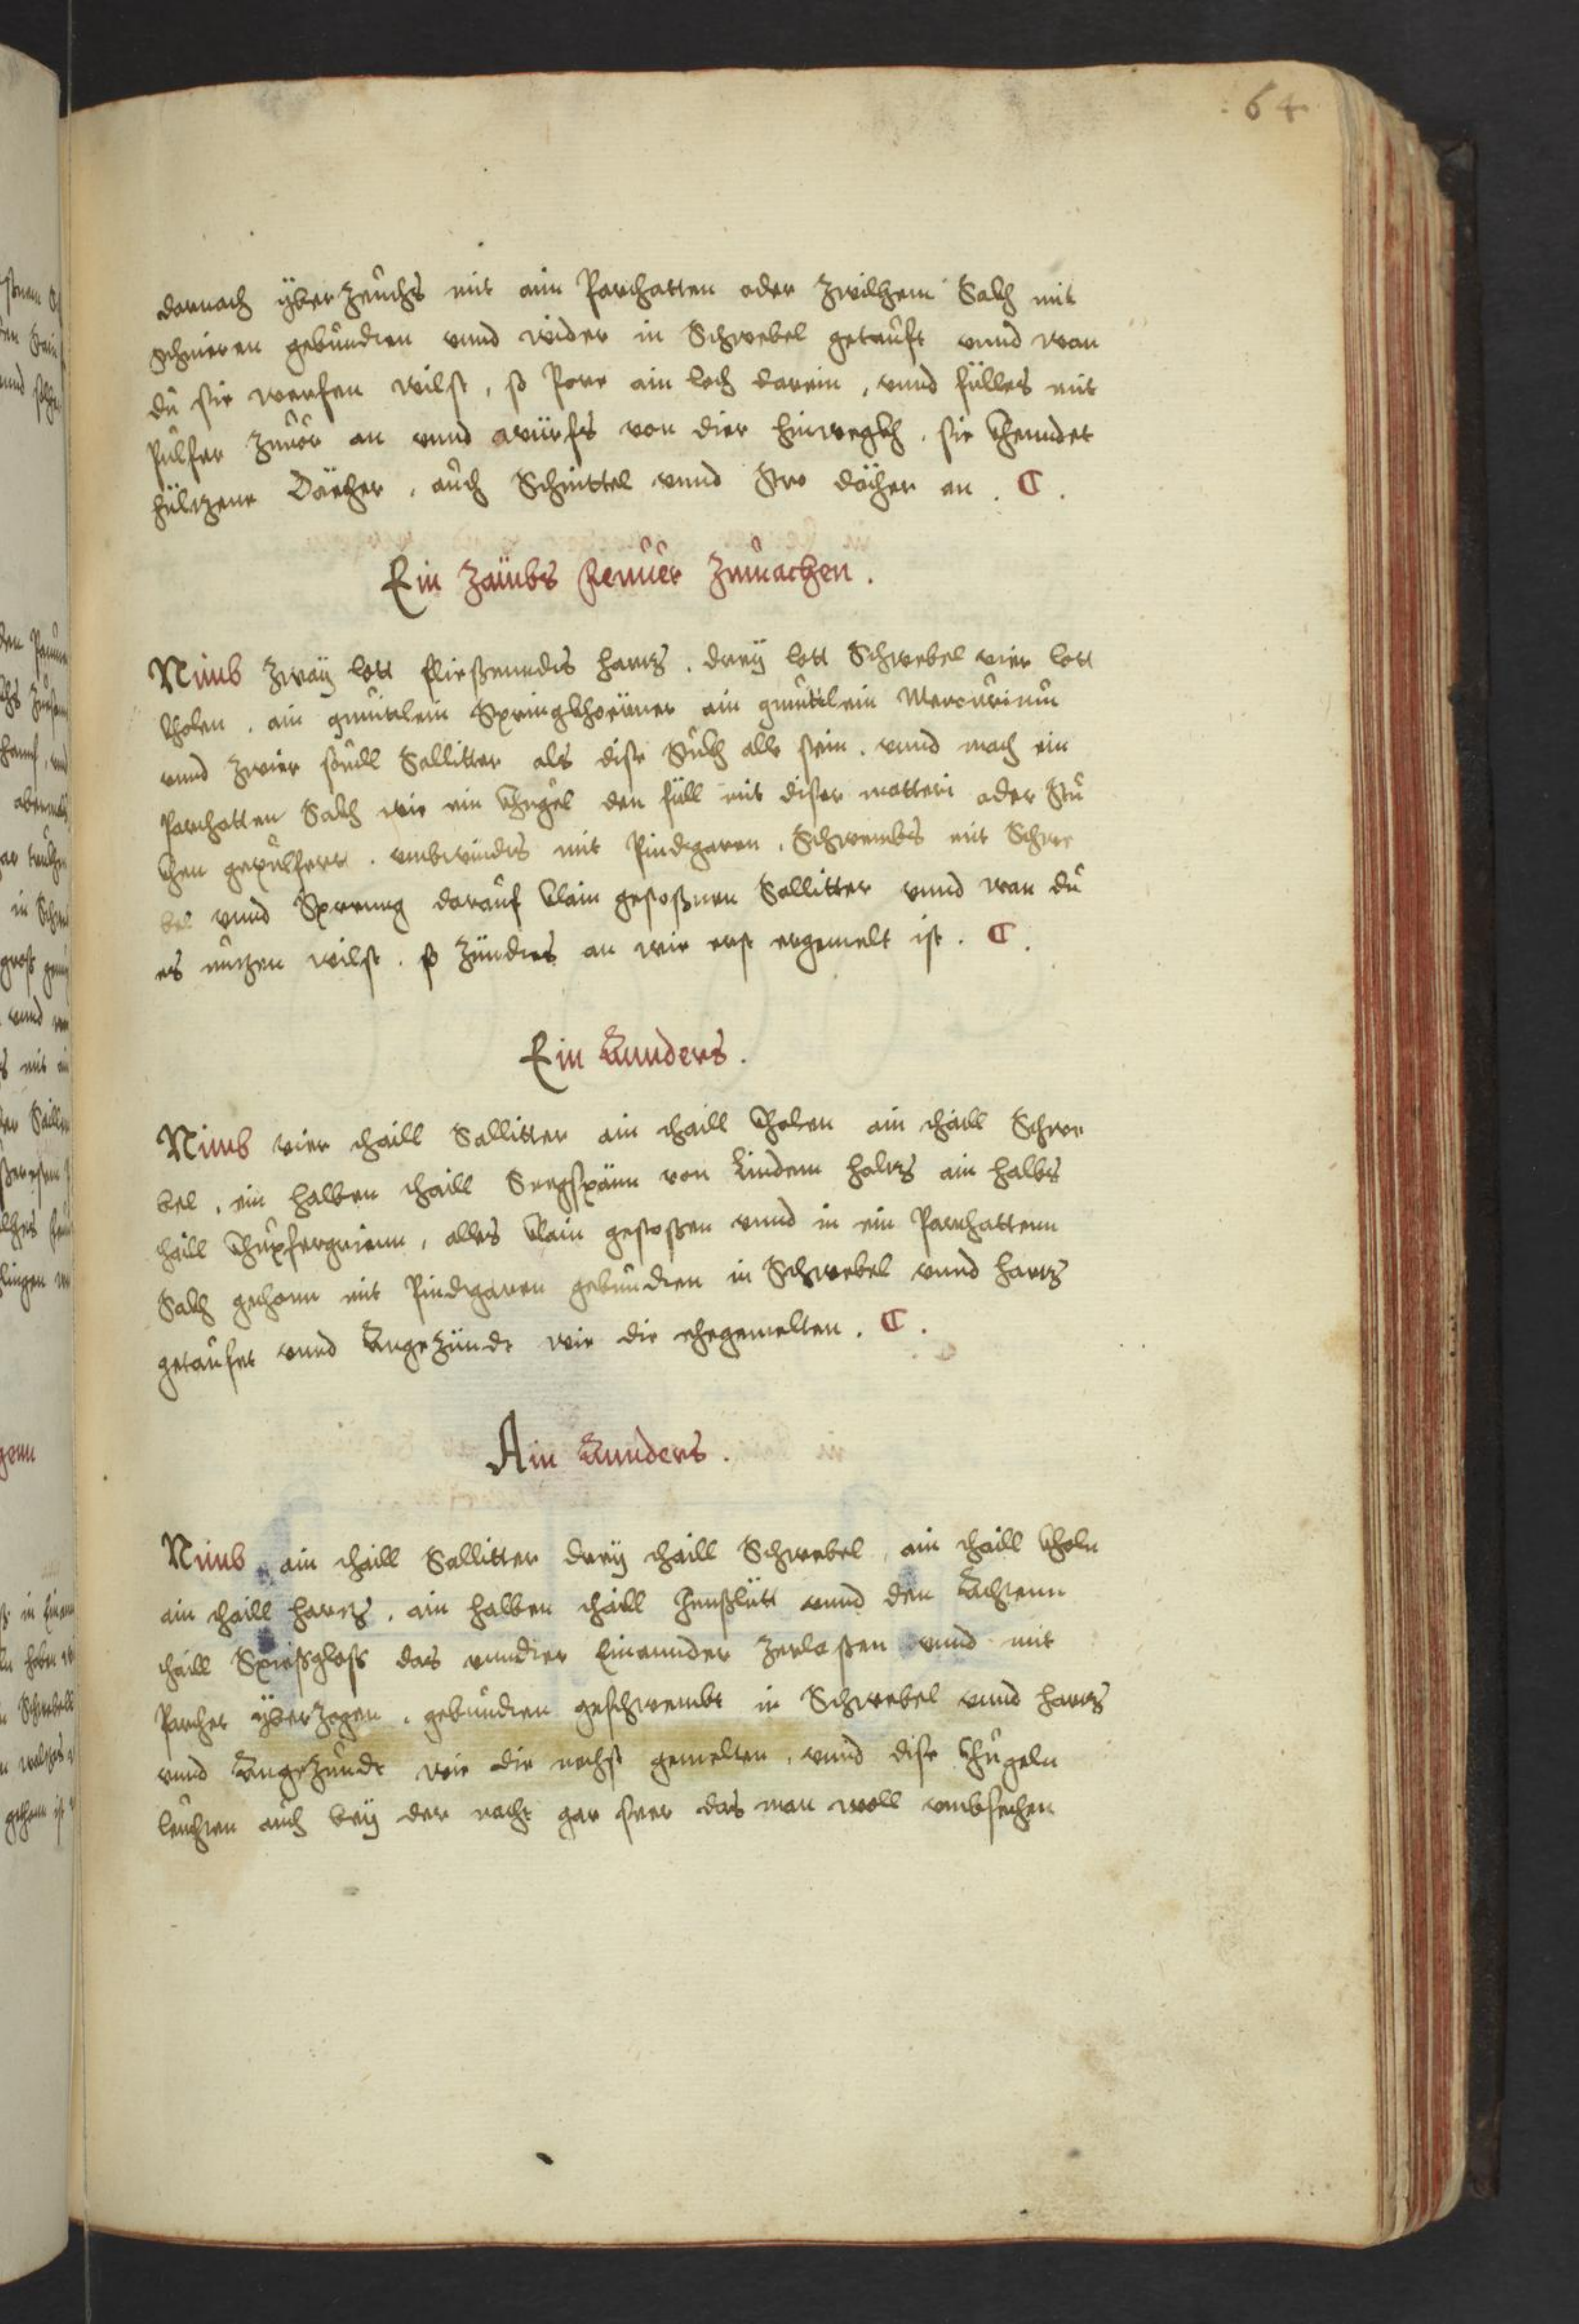 64
darnach yberzeuchs mit ain Parchatten oder Zwilchem Sakh mit
schnieren gebunden vnnd wider in Schwebel getauft vnnd wan
du sie werfen wilst, so Pore ain loch darein, vnnd fülles mit
Pulfer zuuor an vnnd würfs von dier hinwegkh, sie khenndet
hültzene Dächer, auch Schinttel vnnd Stro dächer an .
Ein Feuuer Zumachen .
Nimb zway lott fliessenndes hartz, drey lott Schwebel vier lott
kholen, ain quintlein Springkhörner ain quintlein Mercurium
vnnd zwier souill Sallitter als dise stukh alle sein, vnnd mach ein
Parchatten Sakh wie ein khugel den füll mit diser matteri oder Stu
khen gepulfert, vmbwindes mit Pindgaren, Schwembs mit Schwe
bel vnnd Spreng darauf klain gestossnen Sallitter vnnd wan du
es nutzen wilst, so zündes an wie erst ergemelt ist .
Ein Annders .
Nimb vier thaill Sallitter ain thaill kholen ain thaill Schwe
bel, ein halben thaill Seegspänn von Lindem holtz ain halbs
thaill khupfergrienn, alles klain gestossen vnnd in ein Parchattenn
Sakh gethonn mit Pindgaren gebunden in Schwebel vnnd hartz
getaufet vnnd Angezündt wie die ehegemelten .
Ain Annders .
Nimb ain thaill Sallitter drey thaill Schwebel, ain thaill kholn
ain thaill hartz, ain halben thaill vnnd den Achtenn
thaill Spiessglass das vnndter Einannder zerlassen vnnd mit
Parchet yberzogen, gebunden geschwembt in Schwebel vnnd hartz
vnnd Angezündt wie die nechst gemelten, vnnd dise khugeln
leuchten auch bey der nacht gar seer das man woll vmbsechen